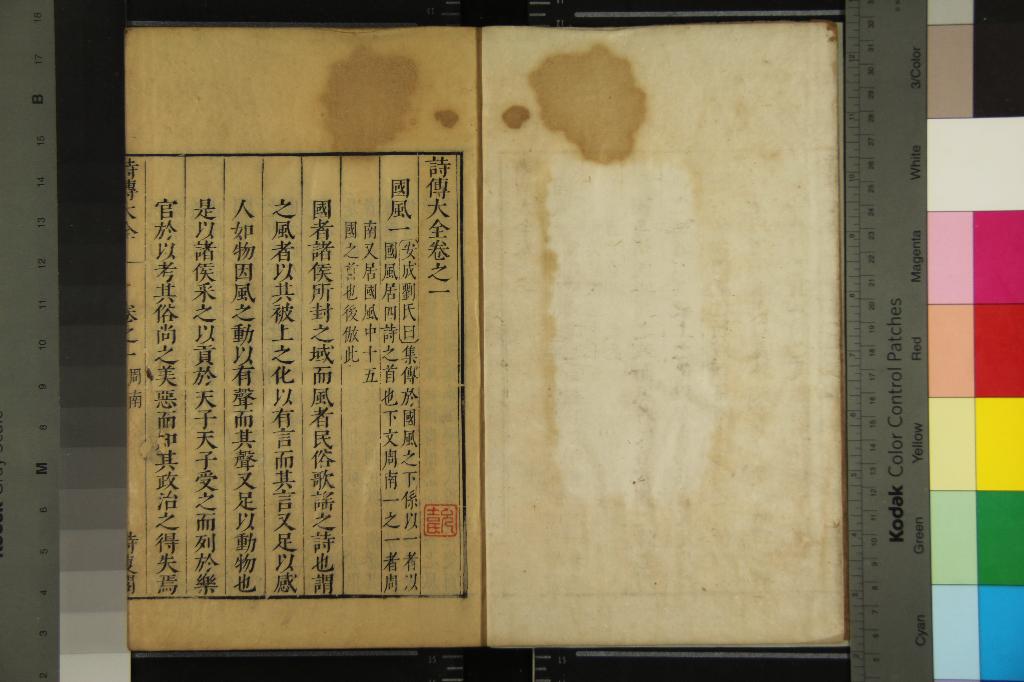 詩傳大全卷之一
國風一
安成劉氏曰集傳於國風之下係以一者以
國風居四詩之首也下文周南一之一者周
南又居國風中十五
國之首也後倣此
國者諸侯所封之域而風者民俗歌謠之詩也謂
之風者以其被上之化以有言而其言又足以感
人如物因風之動以有聲而其聲又足以動物也
是以諸侯采之以貢於天子天子受之而列於樂
官於以考其俗尚之美惡而知其政治之得失焉
詩傳大全
卷之一
周南
Kodak Color Control Patches
3/Color
White
Magenta
Red
Yellow
Green
Cyan
B
M